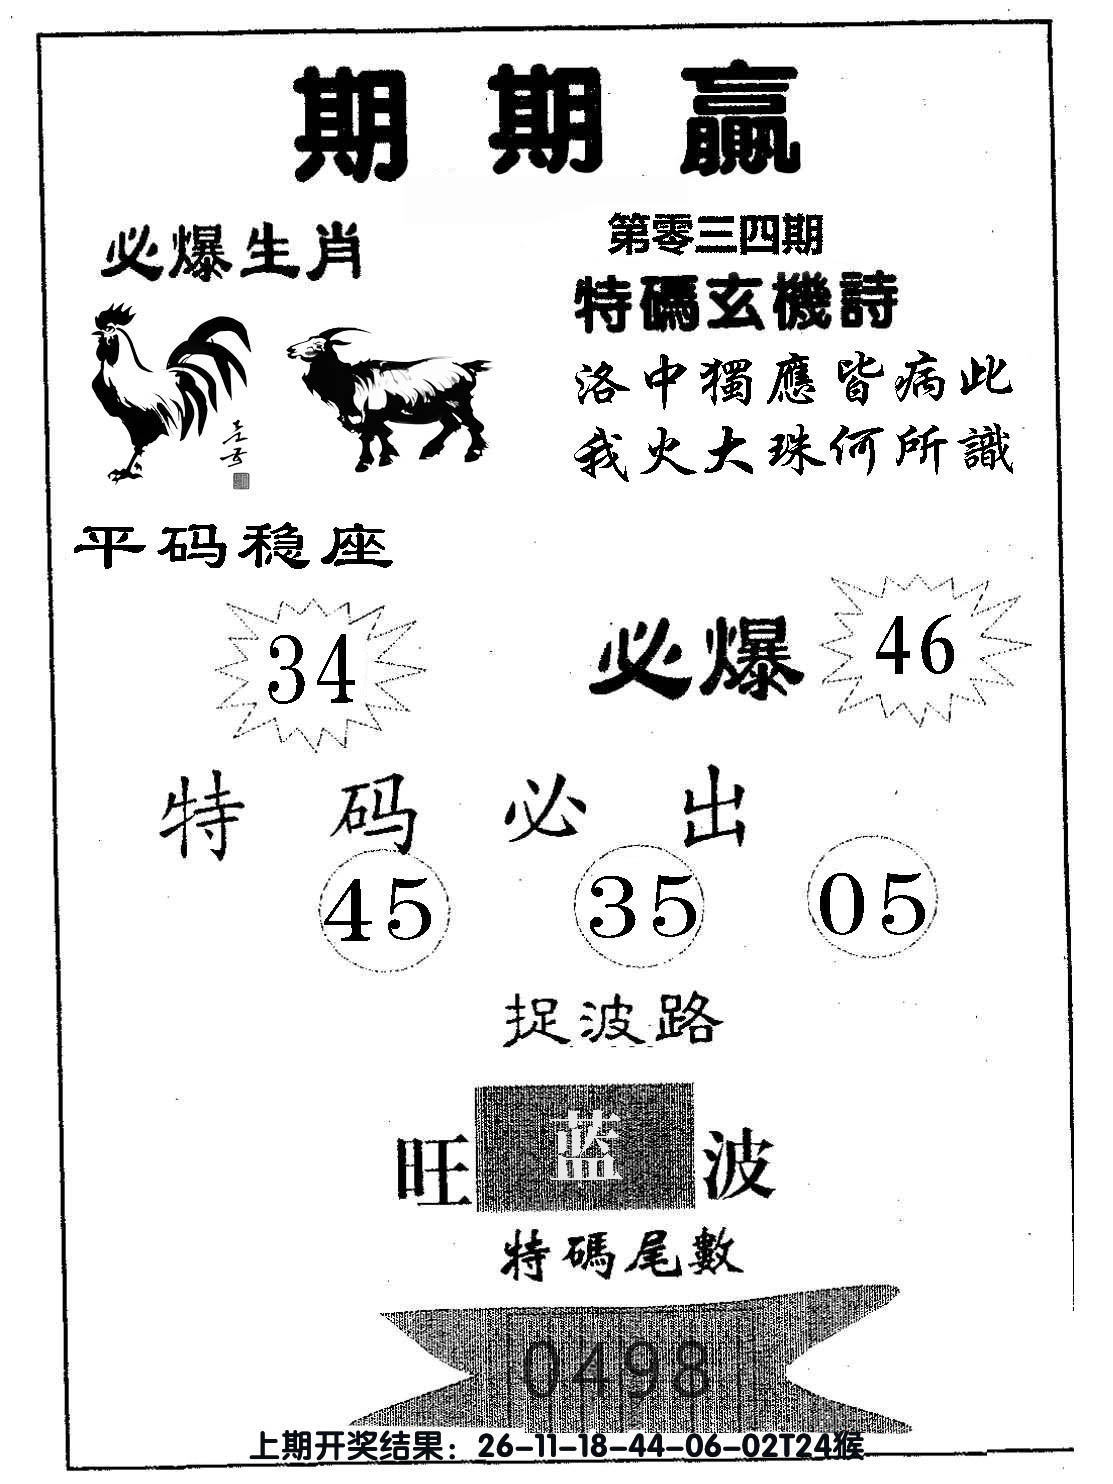 期期赢
必爆生肖
第零三四期
特碼玄機詩
洛中獨應皆病此
我火大珠何所識
平码稳座
34
必爆
46
特码必出
45 35 05
捉波路
旺蓝波
特碼尾數
0498
上期开奖结果：26-11-18-44-06-02T24猴